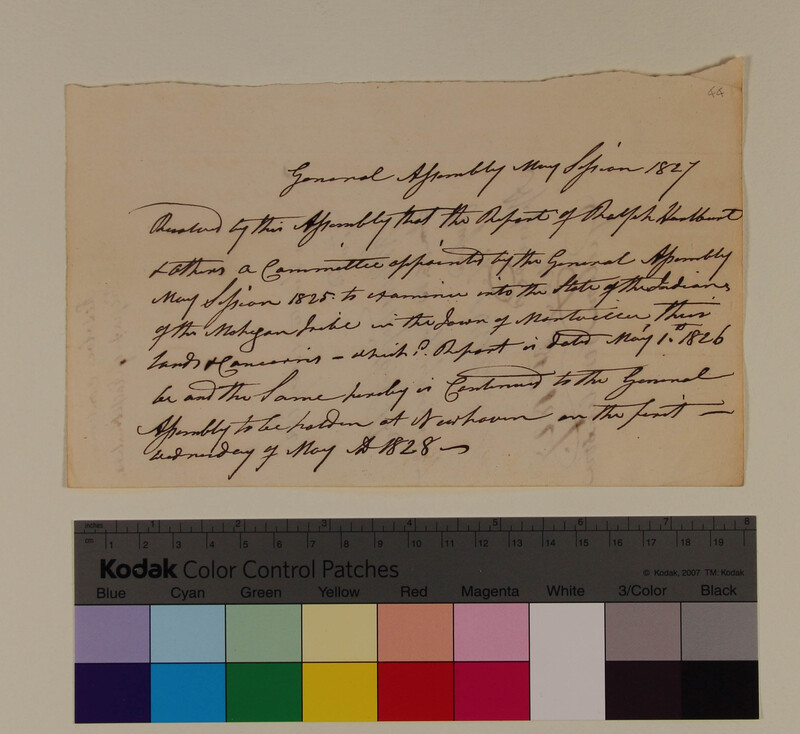 44
General Assembly May Session 1827
Resolved by this Assembly that the Report of Ralph Hurlburt
& others a Committee appointed by the General Assembly
May Session 1825. to examine into the State of the Indians
of the Mohegan Tribe in the Town of Montville their
lands & Concerns – which sd. Report is dated May 1st 1826
be and the Same hereby is Continued to the General
Assembly to be holden at Newhaven on the first –
wednesday of May AD 1828 –
inches 1 2 3 4 5 6 7 8
cm 1 2 3 4 5 6 7 8 9 10 11 12 13 14 15 16 17 18 19
Kodak Color Control Patches
© Kodak, 2007 TM: Kodak
Blue Cyan Green Yellow Red Magenta White 3/Color Black